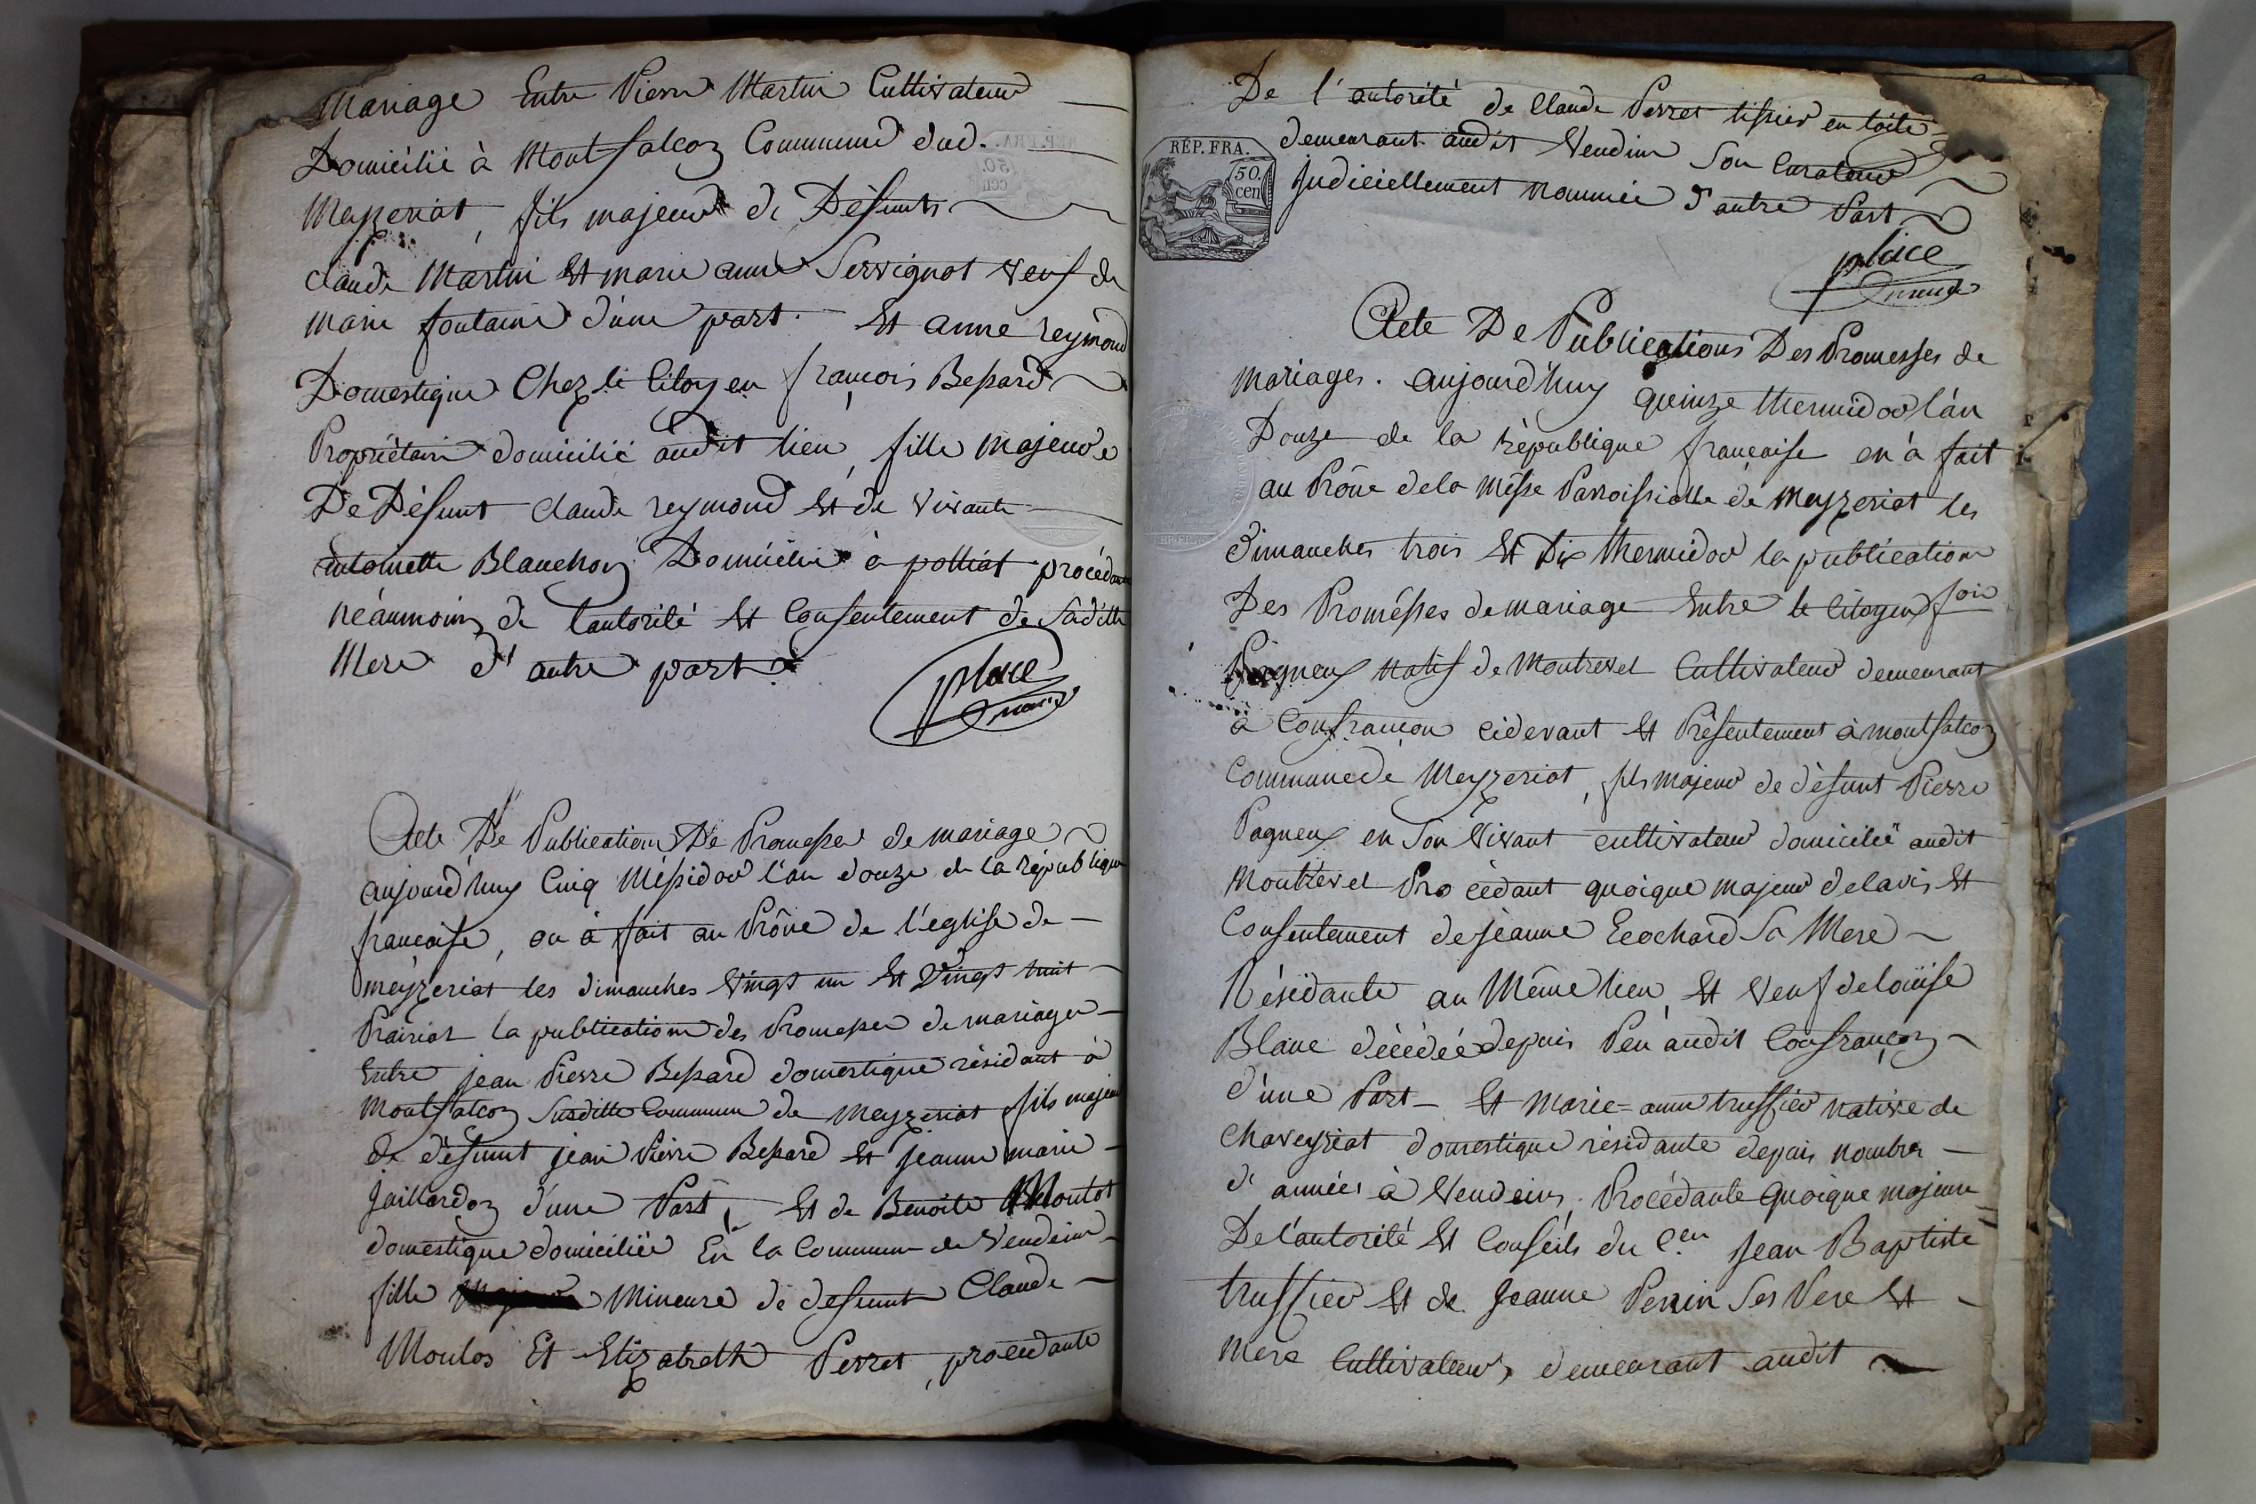 Mariage Entre Pierre Martin Cultivateur
Domicilié à Montfalcon Commune dud.
Mezzeriat, fils majeur de Défunts
claude Martin Et marie anne Servignat veuf de
marie fontaine d'une part. Et anne reymond
Domestique Chez le Citoyen françois Bessard
Propriétaire domicilié audit lieu, fille majeure
De Défunt claude reymond Et de vivante
antoinette Blanchon Domiciliée à polliat procédante
néanmoins de l'autorité Et Consentement de Saditte
Mere d'autre part
place
maire
Acte De Publication De Promesses de mariage
aujourd'huy Cinq Messidor l'an douze de la république
française, on à fait au Prône de l'église de
meyzeriat les dimanches vingt un Et vingt huit
Prairial la publication des Promesses de mariage
Entre jean Pierre Bessard domestique résidant à
Montfalcon Susditte Commune de Meyzeriat fils majeur
de défunt jean Pierre Bessard Et jeanne marie
Gaillardon d'une Part, Et de Benoite Moulot
domestique domiciliée En la Commune de Vendeins
fille Mineure de défunt Claude
Moulos Et Elizabeth Perret, procédante
De l'autorité de Claude Perret tissier en toile
demeurant audit Vendins Son Curateur
judiciellement nommée d'autre Part
RÉP. FRA.
50.
cen
place
maire
Acte De Publications Des Promesses de
mariages. aujourd'huy quinze thermidor l'an
Douze de la république française on à fait
au Prône dela Messe Parroissialle de Meyzeriat les
dimanches trois Et Dix thermidor la publication
Des Promesses de mariage Entre le Citoyen
Pagneux natif de Montrevel Cultivateur demeurant
à Confrançon cidevant Et Présentement à montfalcon
Commune de Meyzeriat, fils majeur de défunt Pierre
Pagneux en Son vivant cultivateur domicilié audit
Montrevel Procédant quoique majeur delavis Et
Consentement de jeanne Ecochard Sa Mere
Résidante au Même lieu Et veuf de loüise
Blanc décédée depuis Peu audit Confrançon
d'une Part - Et Marie=anne truffier native de
Chaveyriat domestique résidante depuis nombre
d'années à Vendeins, Procédante quoique majeure
De l'autorité Et Conseils du C.en Jean Baptiste
truffier Et de Jeanne Perrin Ses Pere Et
Mere Cultivateurs, demeurant audit